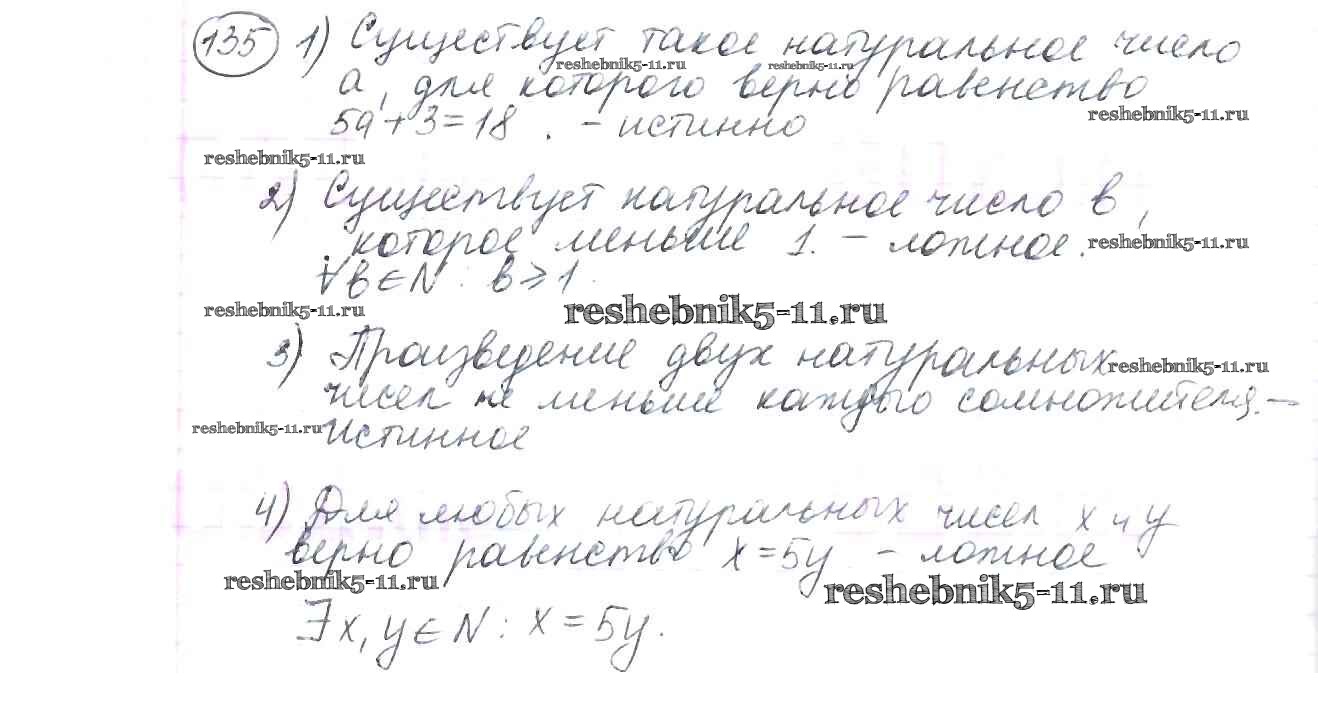 135 1) Существует такое натуральное число
reshebnik5-11.ru reshebnik5-11.ru
а, для которого верно равенство
5а+3=18. - истинно
reshebnik5-11.ru
reshebnik5-11.ru
2) Существует натуральное число в,
которое меньше 1. - ложное.
reshebnik5-11.ru
∀в∈N: в⩾1.
reshebnik5-11.ru reshebnik5-11.ru
3) Произведение двух натуральных
reshebnik5-11.ru
чисел не меньше каждого сомножителя. -
reshebnik5-11.ru
Истинное
4) Для любых натуральных чисел х и у
верно равенство х=5у - ложное
reshebnik5-11.ru reshebnik5-11.ru
∃х, у∈N: х=5у.